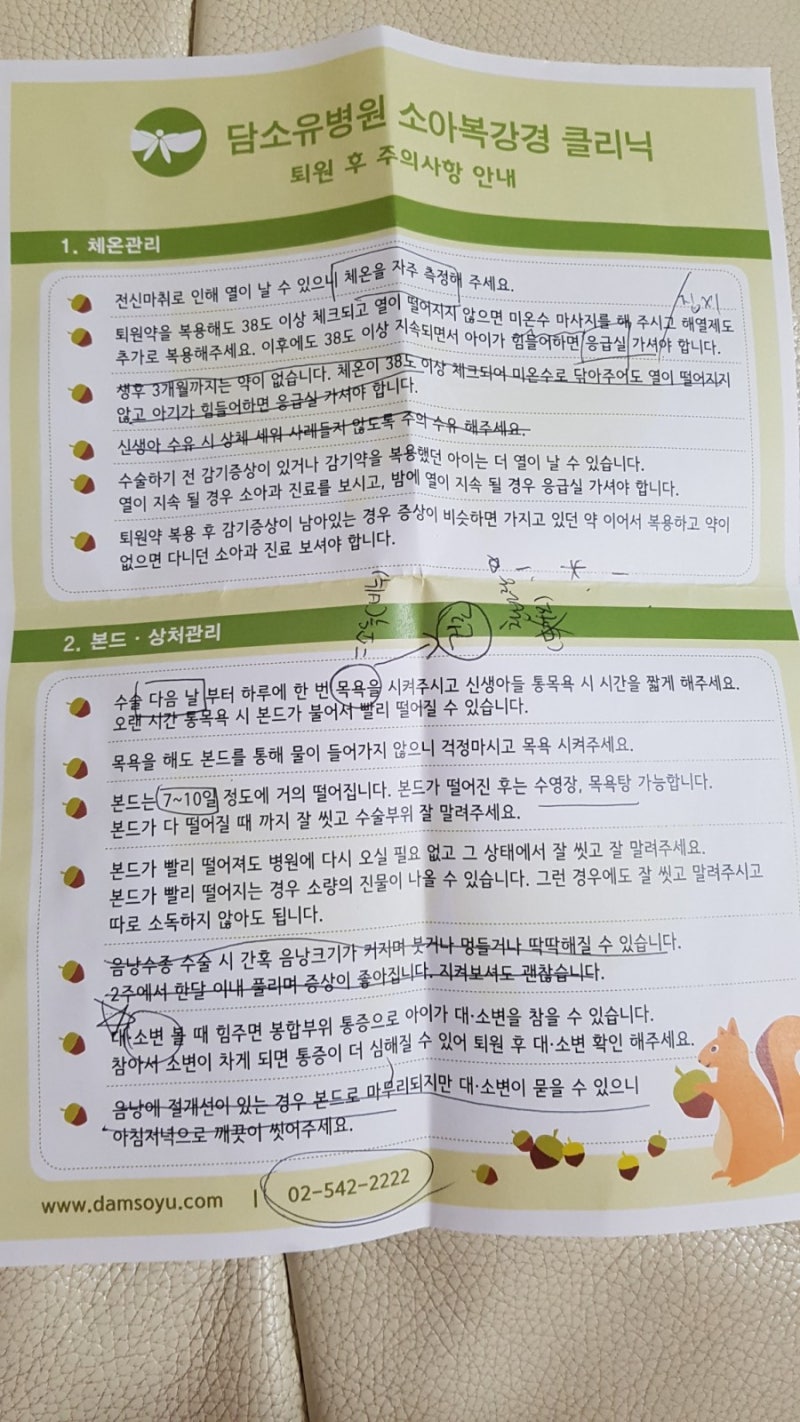 담소유병원 소아복강경 클리닉
퇴원 후 주의사항 안내
1. 체온관리
전신마취로 인해 열이 날 수 있으니 체온을 자주 측정해 주세요.
퇴원약을 복용해도 38도 이상 체크되고 열이 떨어지지 않으면 미온수 마사지를 해 주시고 해열제도
추가로 복용해주세요. 이후에도 38도 이상 지속되면서 아이가 힘들어하면 응급실 가셔야 합니다.
생후 3개월까지는 약이 없습니다. 체온이 38도 이상 체크되어 미온수로 닦아주어도 열이 떨어지지
않고 아기가 힘들어하면 응급실 가셔야 합니다.
신생아 수유 시 상체 세워 사레들지 않도록 주의 수유 해주세요.
수술하기 전 감기증상이 있거나 감기약을 복용했던 아이는 더 열이 날 수 있습니다.
열이 지속 될 경우 소아과 진료를 보시고, 밤에 열이 지속 될 경우 응급실 가셔야 합니다.
퇴원약 복용 후 감기증상이 남아있는 경우 증상이 비슷하면 가지고 있던 약 이어서 복용하고 약이
없으면 다니던 소아과 진료 보셔야 합니다.
2. 본드 · 상처관리
수술 다음 날 부터 하루에 한 번 목욕을 시켜주시고 신생아들 통목욕 시 시간을 짧게 해주세요.
오랜 시간 통목욕 시 본드가 불어서 빨리 떨어질 수 있습니다.
목욕을 해도 본드를 통해 물이 들어가지 않으니 걱정마시고 목욕 시켜주세요.
본드는 7~10일 정도에 거의 떨어집니다. 본드가 떨어진 후는 수영장, 목욕탕 가능합니다.
본드가 다 떨어질 때 까지 잘 씻고 수술부위 잘 말려주세요.
본드가 빨리 떨어져도 병원에 다시 오실 필요 없고 그 상태에서 잘 씻고 잘 말려주세요.
본드가 빨리 떨어지는 경우 소량의 진물이 나올 수 있습니다. 그런 경우에도 잘 씻고 말려주시고
따로 소독하지 않아도 됩니다.
음낭수종 수술 시 간혹 음낭크기가 커지며 붓거나 멍들거나 딱딱해질 수 있습니다.
2주에서 한달 이내 풀리며 증상이 좋아집니다. 지켜보셔도 괜찮습니다.
대·소변 볼 때 힘주면 봉합부위 통증으로 아이가 대·소변을 참을 수 있습니다.
참아서 소변이 차게 되면 통증이 더 심해질 수 있어 퇴원 후 대·소변 확인 해주세요.
음낭에 절개선이 있는 경우 본드로 마무리되지만 대·소변이 묻을 수 있으니
아침저녁으로 깨끗이 씻어주세요.
www.damsoyu.com | 02-542-2222